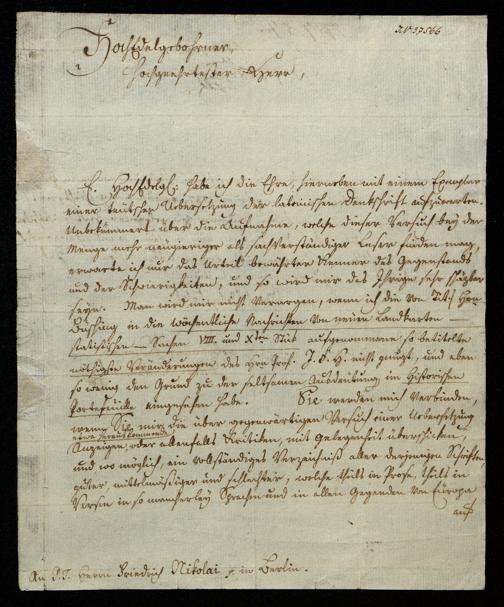 I.N. 37566
HochEdelgebohrner,
Hochgeehrtester Herr,
E. HochEdelgb: habe ich die Ehre, hierneben mit einem Exemplar
einer teutschen Uebersetzung der lateinischen Denkschrift aufzuwarten.
Unbekümmert über die Aufnahme, welche dieser Versuch bey der
Menge mehr neugieriger als sachverständiger Leser finden mag,
erwarte ich nur das Urteil bewährter Kenner des Gegenstands
und der Schwierigkeiten, und so wird mir das Ihrige sehr schäzbar
seyn. Man wird mir nicht verargen, wenn ich die von Hrn
Büsching in die wöchentliche Nachrichten von neuen Landkarten
statistischen Sachen VIII. und Xten Stük aufgenommene so betitelte
nöthigste Veränderungen des Hrn Prof. J. d. H. nicht genuzt, und eben
so wenig den Grund zu der seltsamen Ausdeutung im Historischen
Portefeuille eingesehen habe. Sie werden mich verbinden,
wenn Sie mir die über gegenwärtigen Versuch einer Uebersetzung
etwa herauskommende
Anzeigen, oder allenfalls Kritiken, mit Gelegenheit überschicken,
und wo möglich, ein vollständiges Verzeichniß aller derjenigen Schriften,
guter, mittelmäßiger und schlechter, welche theils in Prose, theils in
Versen in so mancherley Sprachen und in allen Gegenden von Europa
auf
An S.T. Herrn Friedrich Nikolai in Berlin.